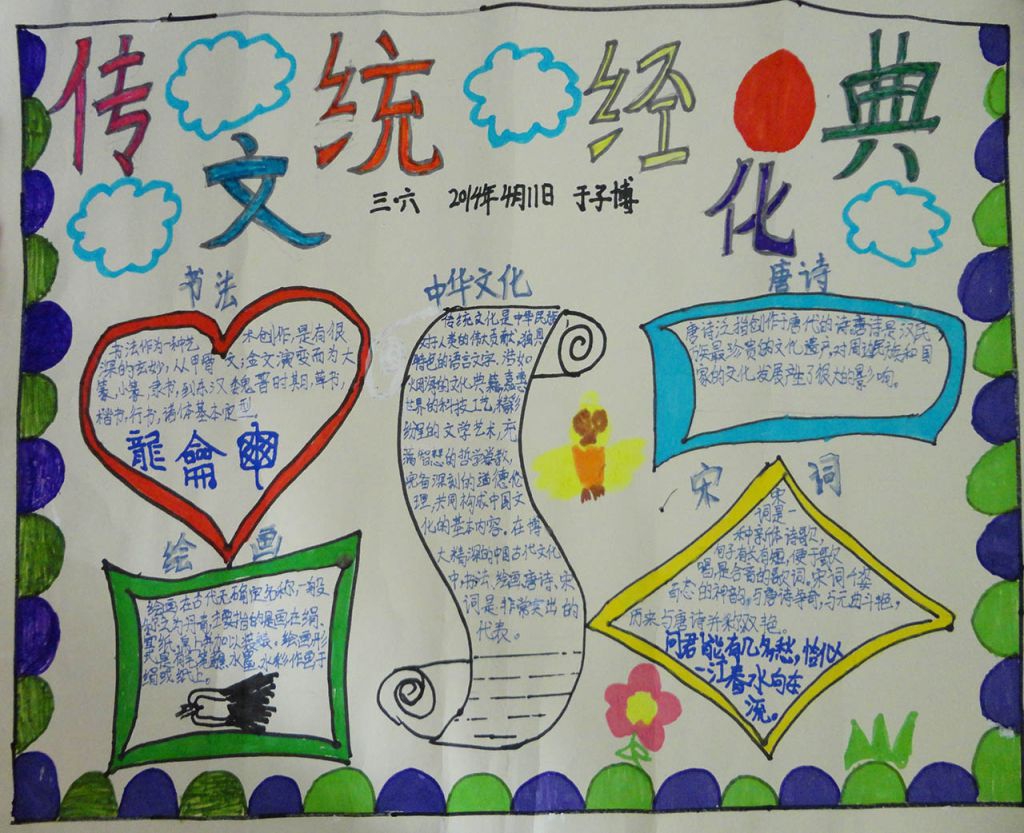 传统经典
文化
三·六 2014年4月11日 于子博
书法
书法作为一种艺术创作,是有很
深的玄妙,从甲骨文,金文演变而为大
篆,小篆,隶书,到东汉魏晋时期,草书,
楷书,行书,诸体基本定型。
龍
绘画
绘画在古代无确定名称,一般
称之为丹青,主要指的是画在绢、
纸上并加以装裱。绘画形
式是毛笔蘸水墨、水彩作画于
绢或纸上。
中华文化
传统文化是中华民族
对人类的伟大贡献,独具
特色的语言文字,浩如
烟海的文化典籍,嘉惠
世界的科技工艺,精彩
纷呈的文学艺术,充
满智慧的哲学宗教,
完备深刻的道德伦
理,共同构成中国文
化的基本内容。在博
大精深的中国古代文化
中书法、绘画、唐诗、宋
词是非常突出的
代表。
唐诗
唐诗泛指创作于唐代的诗,唐诗是汉民
族最珍贵的文化遗产,对周边民族和国
家的文化发展产生了很大的影响。
宋词
宋
词是一
种新体诗歌,
句子有长有短,便于歌
唱,是合音的歌词。宋词千姿
百态的神韵,与唐诗争奇,与元曲斗艳,
历来与唐诗并称双艳。
问君能有几多愁,恰似
一江春水向东
流。